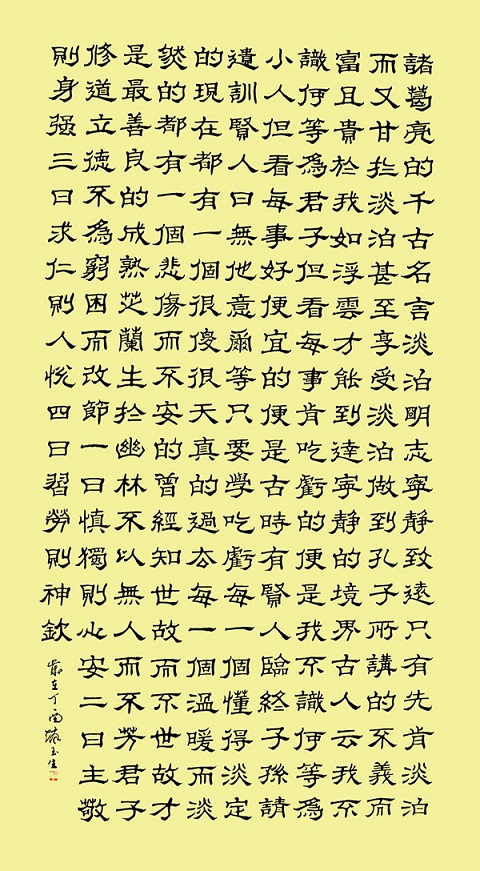 諸葛亮的千古名言淡泊明志寧靜致遠只有先肯淡泊
而又甘於淡泊甚至享受淡泊做到孔子所講的不義而
富且貴於我如浮雲才能到達寧静的境界古人云我不
識何等為君子但看每事肯吃虧的便是我不識何等為
小人但看每事好便宜的便是古時有賢人臨終子孫請
遺訓賢人曰無他意爾等只要學吃虧每一個懂得淡定
的現在都有一個很傻很天真的過去每一個溫暖而淡
然的都有一個悲傷而不安的曾經知世故而不世故才
是最善良的成熟芝蘭生於幽林不以無人而不芳君子
修道立德不為窮困而改節一曰慎獨則心安二曰主敬
則身强三曰求仁則人悅四曰習勞則神欽
歲在丁酉玉生